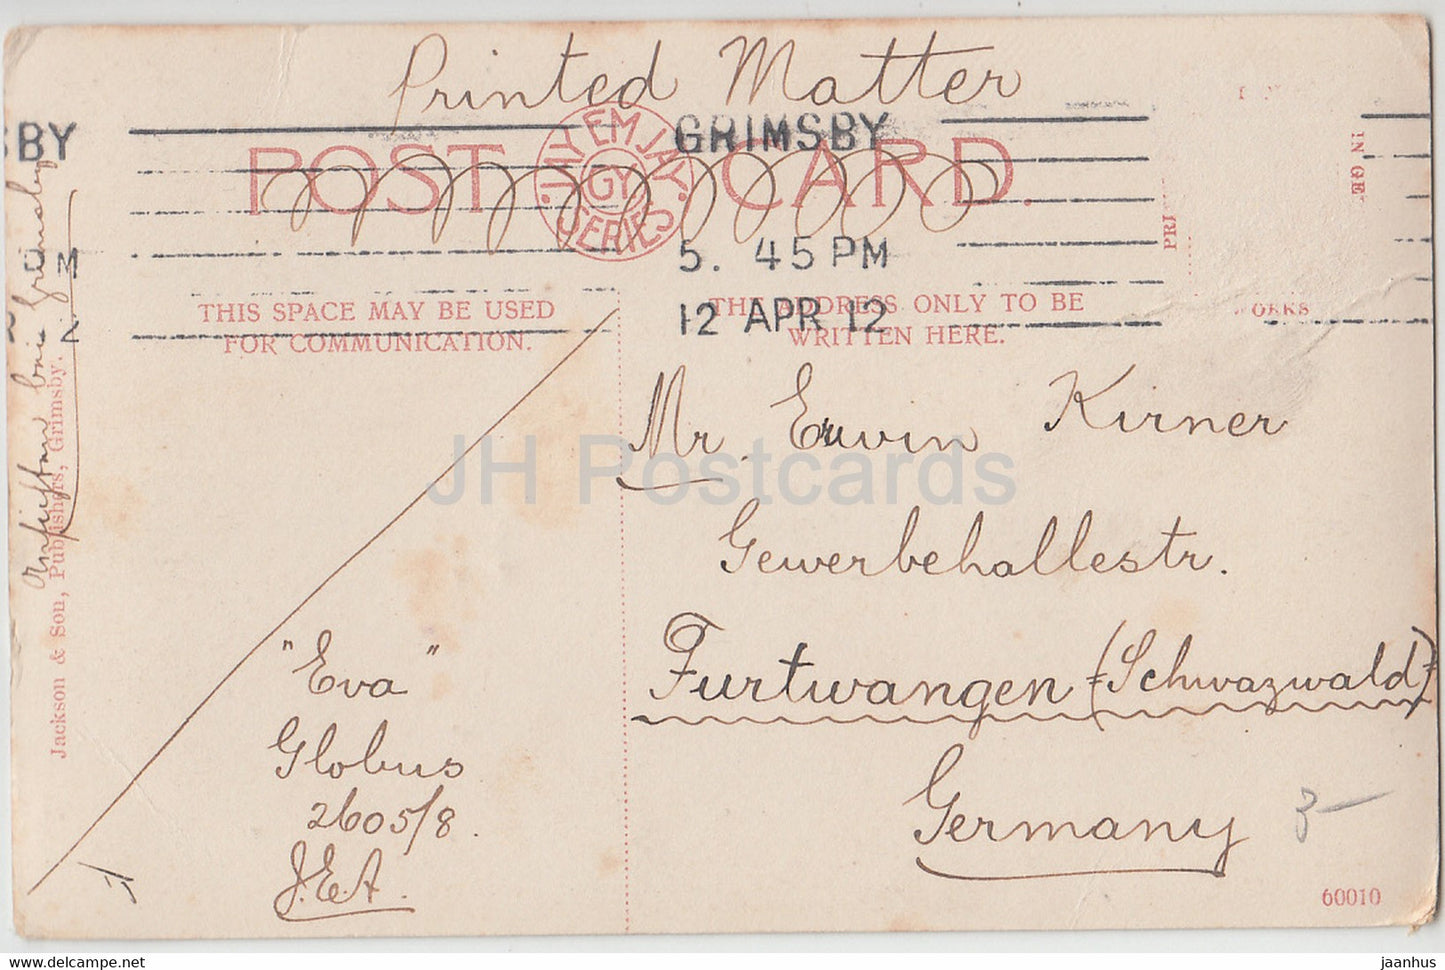 Printed Matter
SBY
GRIMSBY
POST CARD.
JAY EM JAY
GY
SERIES
5. 45 PM
12 APR 12
M
2
THIS SPACE MAY BE USED
FOR COMMUNICATION.
THE ADDRESS ONLY TO BE
WRITTEN HERE.
PRI
IN GE
ORKS
Jackson & Son, Publishers, Grimsby.
Grimsby
Mr. Erwin Kirner
Gewerbehallestr.
Furtwangen (Schwazwald)
Germany
"Eva"
Globus
2605/8.
J.E.A.
3-
60010
JH Postcards
www.delcampe.net
jaanhus